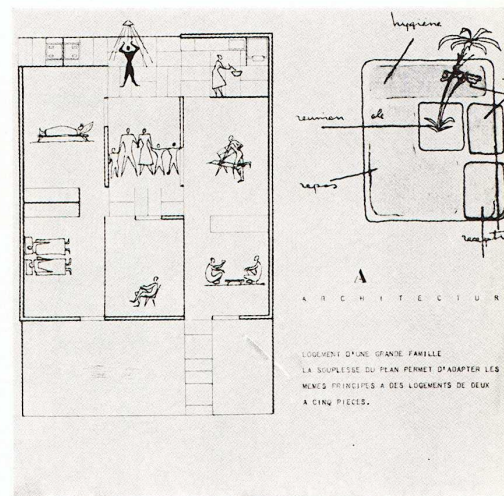 hygiene
reunion
repos
A
A R C H I T E C T U R
LOGEMENT D'UNE GRANDE FAMILLE
LA SOUPLESSE DU PLAN PERMET D'ADAPTER LES
MEMES PRINCIPES A DES LOGEMENTS DE DEUX
A CINQ PIECES.